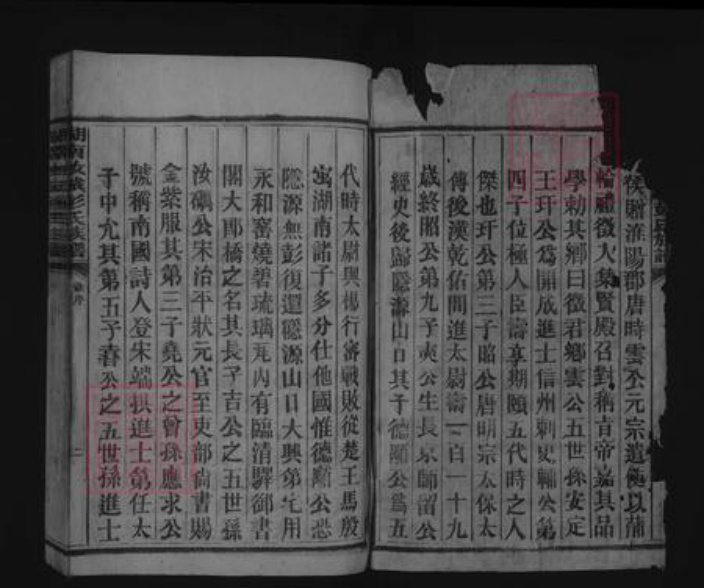 侯贈淮陽郡唐時雲公元宗遣使以蒲
輪禮徵入集賢殿召對稱旨帝嘉其品
學勅其鄉曰徵君鄉雲公五世孫安定
王玕公為開成進士信州刺史輔公第
四子位極人臣壽享期頤五代時之人
傑也玕公第三子昭公唐明宗太保太
傅後漢乾佑間進太尉壽一百一十九
歲終昭公第九子爽公生長京師留公
經史後歸隱源山口其子德顒公為五
代時太尉興楊行審戰敗從楚王馬殷
寓湖南諸子多分仕他國惟德顒公恐
隱源無彭復還隱源山口大興第宅用
永和窰燒碧琉璃瓦內有臨清驛御書
閣大郎橋之名其長子吉公之五世孫
汝礪公宋治平狀元官至吏部尚書賜
金紫服其第三子堯公之曾孫應求公
號稱南國詩人登宋端拱進士第任太
子中允其第五子春公之五世孫進士
彭氏族譜